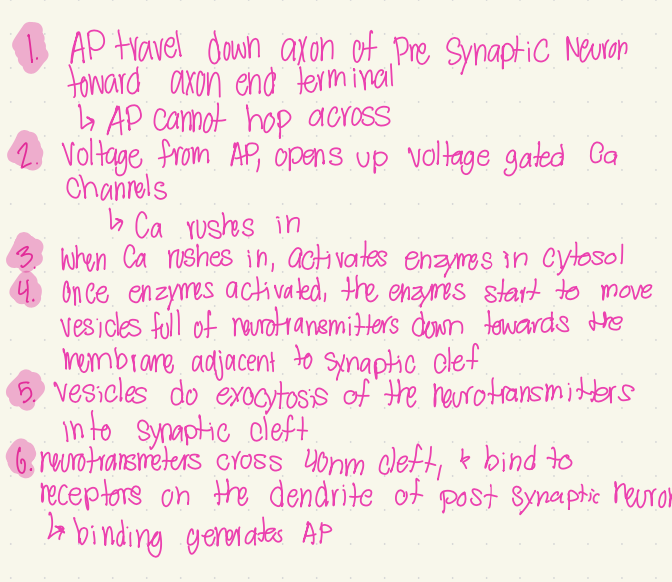 1. AP travel down axon of Pre Synaptic Neuron
toward axon end terminal
↳ AP cannot hop across
2. Voltage from AP, opens up voltage gated Ca
Channels
↳ Ca rushes in
3. when Ca rushes in, activates enzymes in cytosol
4. Once enzymes activated, the enzymes start to move
vesicles full of neurotransmitters down towards the
membrane adjacent to synaptic clef
5. vesicles do exocytosis of the neurotransmitters
into synaptic cleft
6. neurotransmeters cross 40nm cleft, & bind to
receptors on the dendrite of post synaptic neuron
↳ binding generates AP